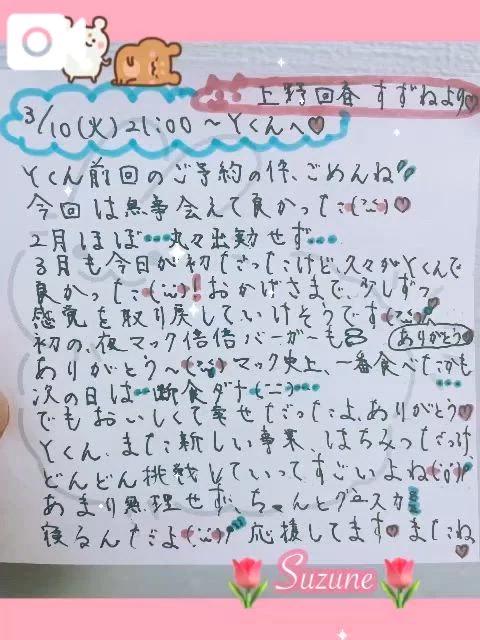 上野回春 すずねより♡
3/10(火)21:00〜Yくんへ♡
Yくん前回のご予約の件、ごめんね
今回は無事会えて良かった:(´˘`)♡
2月ほぼ…丸々出勤せず…
3月も今日が初だったけど、久々がYくんで
良かった:(¨̮)!おかげさまで、少しずつ
感覚を取り戻していけそうです(¨̮)
初の夜マック倍倍バーガーも8 ありがとう♡
ありがとう〜(¨̮)マック史上、一番食べたかも
次の日は…断食ダナ(ニニ)…
でもおいしくて幸せだったよ、ありがとう♡
Yくん、また新しい事業、はちみつだっけ
どんどん挑戦していってすごいよね(¨̮)!
あまり無理せず、ちゃんとグースカ
寝るんだよ(¨̮)応援してます♡またね
♡
Suzune